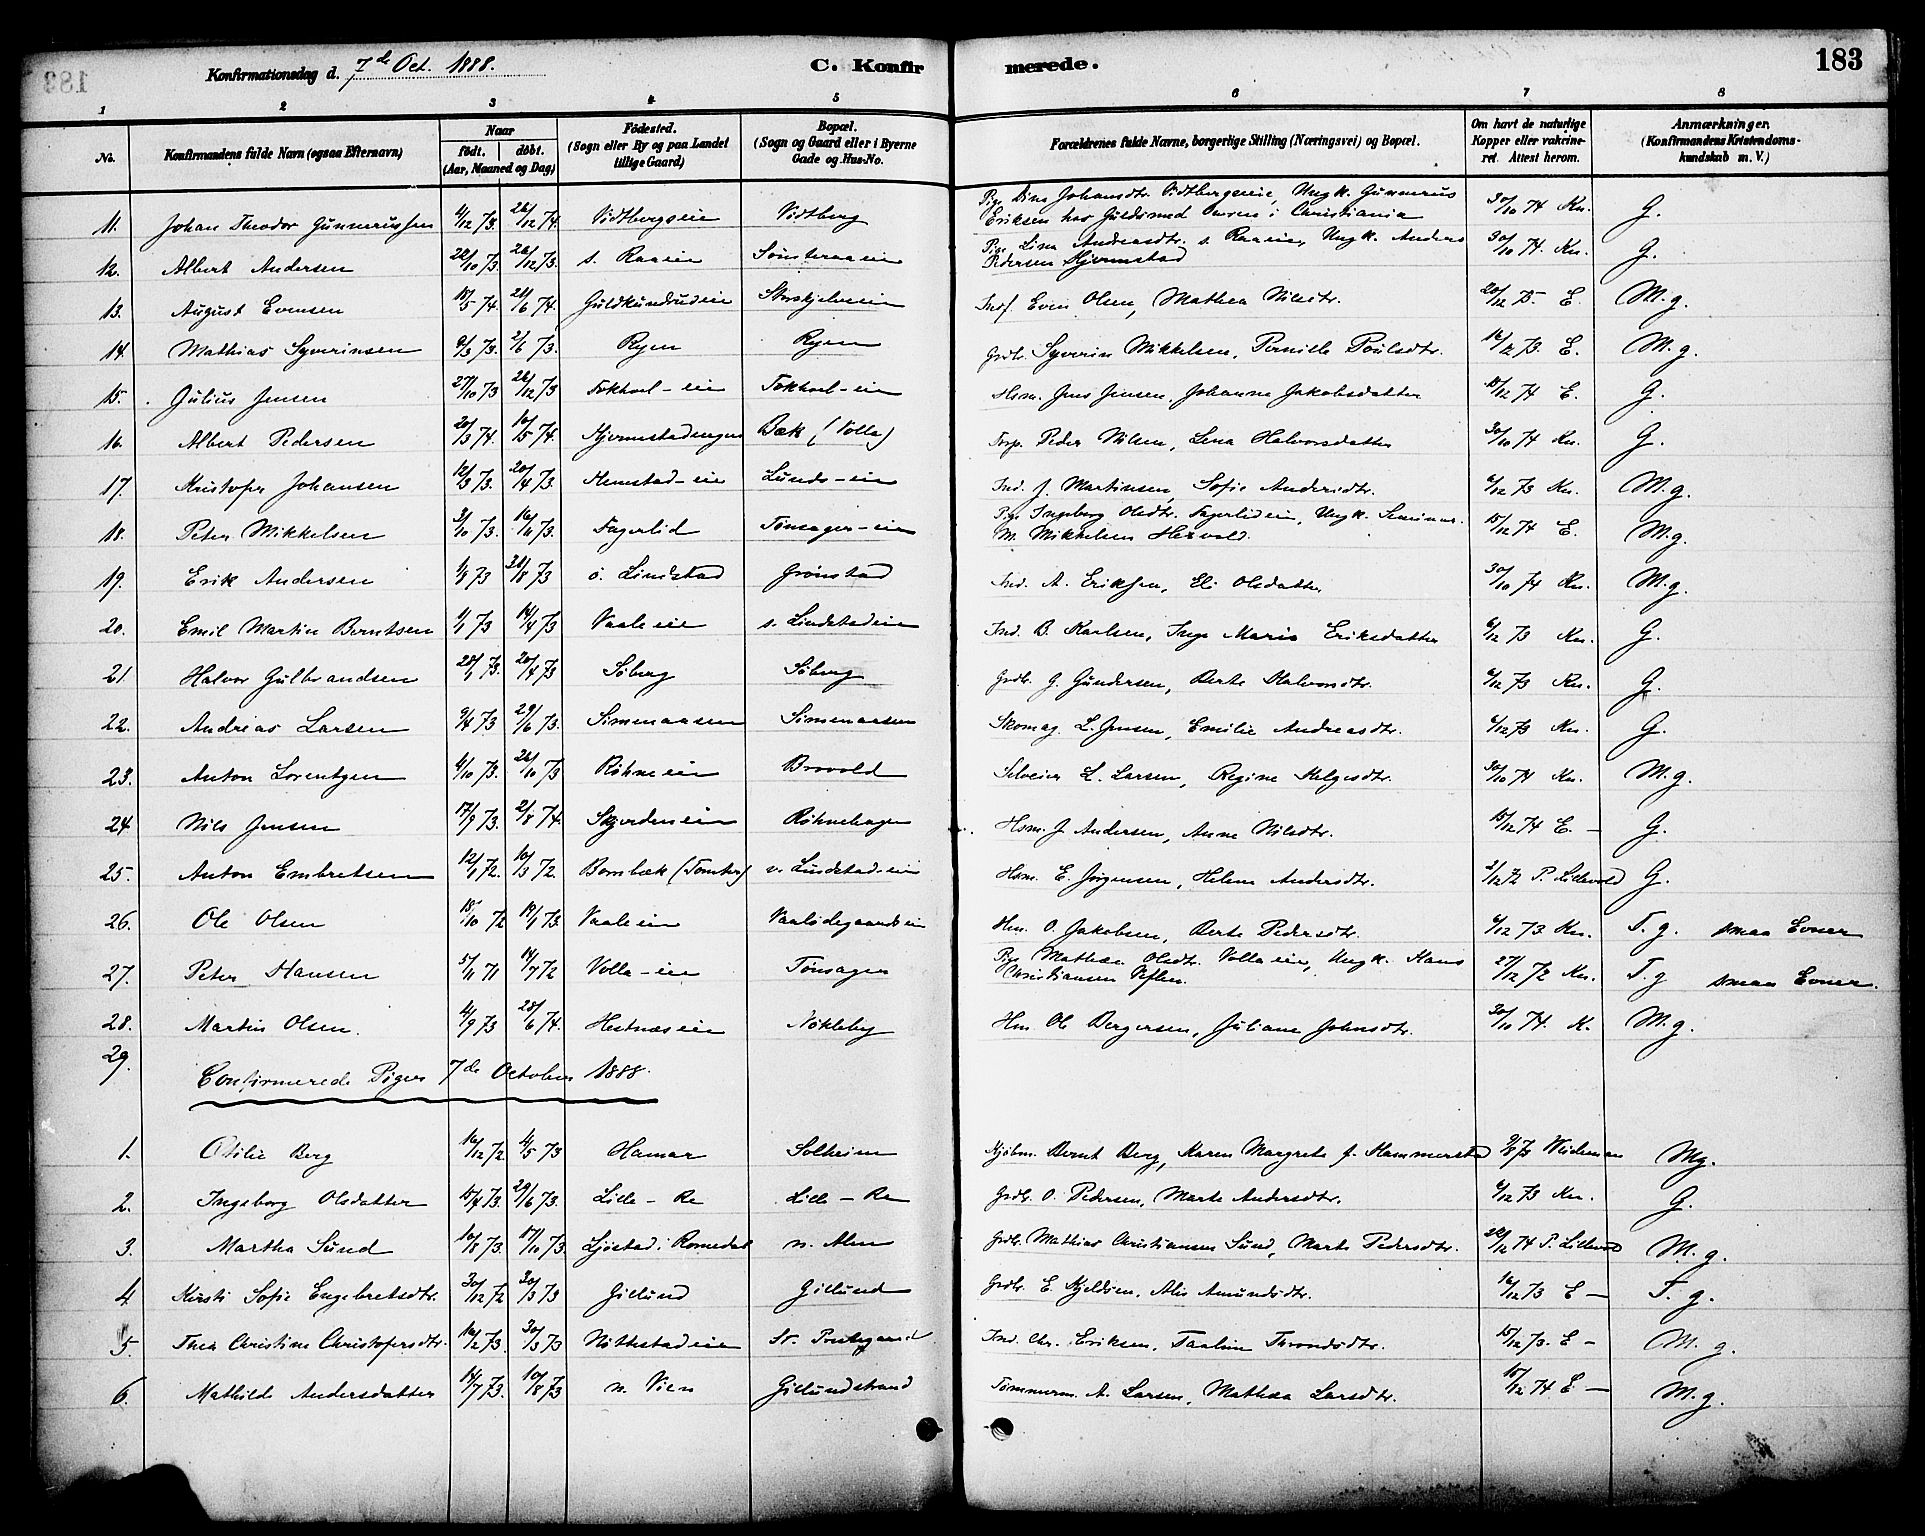 Konfirmationsdag d. 7de Oct. 1888. C. Konfirmerede. 183
1 2 3 4 5 6 7 8
No. Konfirmandens fulde Navn (ogsaa Efternavn) Naar født. døbt. (Aar, Maaned og Dag) Fødested. (Sogn eller By og paa Landet tillige Gaard) Bopæl. (Sogn og Gaard eller i Byerne Gade og Hus-No. Forældrenes fulde Navne, borgerlige Stilling (Næringsvei) og Bopæl. Om havt de naturlige Kopper eller vakcineret. Attest herom. Anmærkninger. (Konfirmandens Kristendomskundskab m. V.)
11. Johan Theodor Gunnerussen 4/12 73. 26/12 74. Vidtbergeie Vidtberg Pige Dina Johansdtr. Vidtbergeie, Ungk. Gunnerus Eriksen hos Guldsmed i Christiania 30/10 74 Kn. G.
12. Albert Andersen 22/10 73. 26/12 73. s. Raaeie Sønsteraaeie Pige Lina Andreasdtr. s. Raaeie, Ungk. Anders Pedersen Hjermstad 30/10 74. Kn. G.
13. August Evensen 18/5 74. 21/6 74. Guldkundrudeie Storskjelveeie Ind. Even Olsen, Mathea Nilsdtr. 20/12 75. E. M.g.
14. Mathias Syverinsen 9/3 73. 2/6 73. Ryen Ryen Grdb. Syverin Mikkelsen, Pernille Poulsdtr. 16/12 73. E. M.g.
15. Julius Jensen 27/10 73 26/12 73 Tokhol-eie Tokhol-eie Hsm. Jens Jensen, Johanne Jakobsdatter 15/12 74 E. G.
16. Albert Pedersen 20/3 74. 10/5 74. Hjermstadengen Bæk (Volla) Torp. Peder Nilsen, Lena Halvorsdatter 30/10 74 Kn. G.
17. Kristofer Johansen 12/3 73. 20/4 73. Hemstad-eie Lunds-eie Ind. J. Martinsen, Sofie Andersdtr. 6/12 73 Kn. M.g.
18. Peter Mikkelsen 3/10 73. 16/11 73. Fagerlid Tønsager-eie Pige Ingeborg Olsdtr. Fagerlideie, Ungk. M. Mikkelsen 15/12 74 E. M.g.
19. Erik Andersen 1/8 73 31/8 73 ø. Lindstad Grønstad Ind. A. Eriksen, Eli Olsdatter 30/10 74 Kn. M.g.
20. Emil Martin Berntsen 1/1 73 14/4 73 Vaaleeie s. Lindstadeie Ind. B. Karlsen, Inge Marie Eriksdatter 6/12 73 Kn. G.
21. Halvor Gulbrandsen 28/1 73. 20/4 73 Søberg Søberg Grdb. G. Gundersen, Berte Halvorsdtr. 6/12 73 Kn. G.
22. Andreas Larsen 9/4 73 29/6 73. Simenaasen Simenaasen Skomag. L. Jensen, Emilie Andreasdtr. 6/12 73 Kn. G.
23. Anton Lorentzen 6/10 73. 26/10 73 Røhneeie Brovold Selveier L. Larsen, Regine Helgesdtr. 30/10 74 Kn. M.g.
24 Nils Jensen 17/9 73. 2/8 74. Skjerdeneie Røhnehagen Hsm. J. Andersen, Anne Nilsdtr. 15/12 74 E. — G.
25. Anton Embretsen 12/1 72. 10/3 72. Bornbæk (Tomter) v. Lindstad-eie Hsm. E. Jørgensen, Helene Andersdtr. 2/12 72 P. Lillevold G.
26. Ole Olsen 15/10 72 19/1 73. Vaaleeie Vaalødegaardseie Hm. O. Jakobsen, Berte Pedersdtr. 6/12 73 Kn. T.g. smaa Evner
27. Peter Hansen 5/11 71 14/7 72 Volla-eie Tønsager Pige Mathea Olsdtr. Vollaeie, Ungk. Hans Christiansen 27/12 72 Kn. T.g smaa Evner.
28. Martin Olsen. 4/9 73 28/6 74. Hestnæseie Nøkleby Hm. Ole Bergersen, Juliane Johnsdtr. 30/10 74. K. M.g.
29. Confirmerede Piger 7de October 1888.
1. Otilie Berg 16/12 72 4/5 73 Hamar Solheim Kjøbm. Bernt Berg, Karen Margrete f. Hammerstad 9/8 73 Wideman Mg.
2. Ingeborg Olsdatter 15/4 73. 29/6 73. Lille-Re Lille-Re Grdb. O. Pedersen, Marte Andersdtr. 6/12 73 Kn. G.
3. Martha Sund 10/8 73. 17/10 73. Ljøstad i Romedal n. Alm Grdb. Mathias Christiansen Sund, Marte Pedersdtr. 20/12 74 P. Lillevold M.g.
4 Kirsti Sofie Engebretsdtr. 30/12 72 30/3 73 Gillund Gillund Grdb. E. Kjeldsen, Alis Amundsdtr. 16/12 73 E — T.g.
5. Thea Christine Christofersdtr. 16/2 73. 30/3 73 Nøttestadeie St. Prestegaard Ind. Chr. Eriksen, Taaline Throndsdtr. 15/12 73. E — M.g.
6. Mathilde Andersdatter 14/7 73. 10/8 73 n. Vien Gillundstrand Tømmerm. A. Larsen, Mathea Larsdtr. 15/12 74 E — M.g.